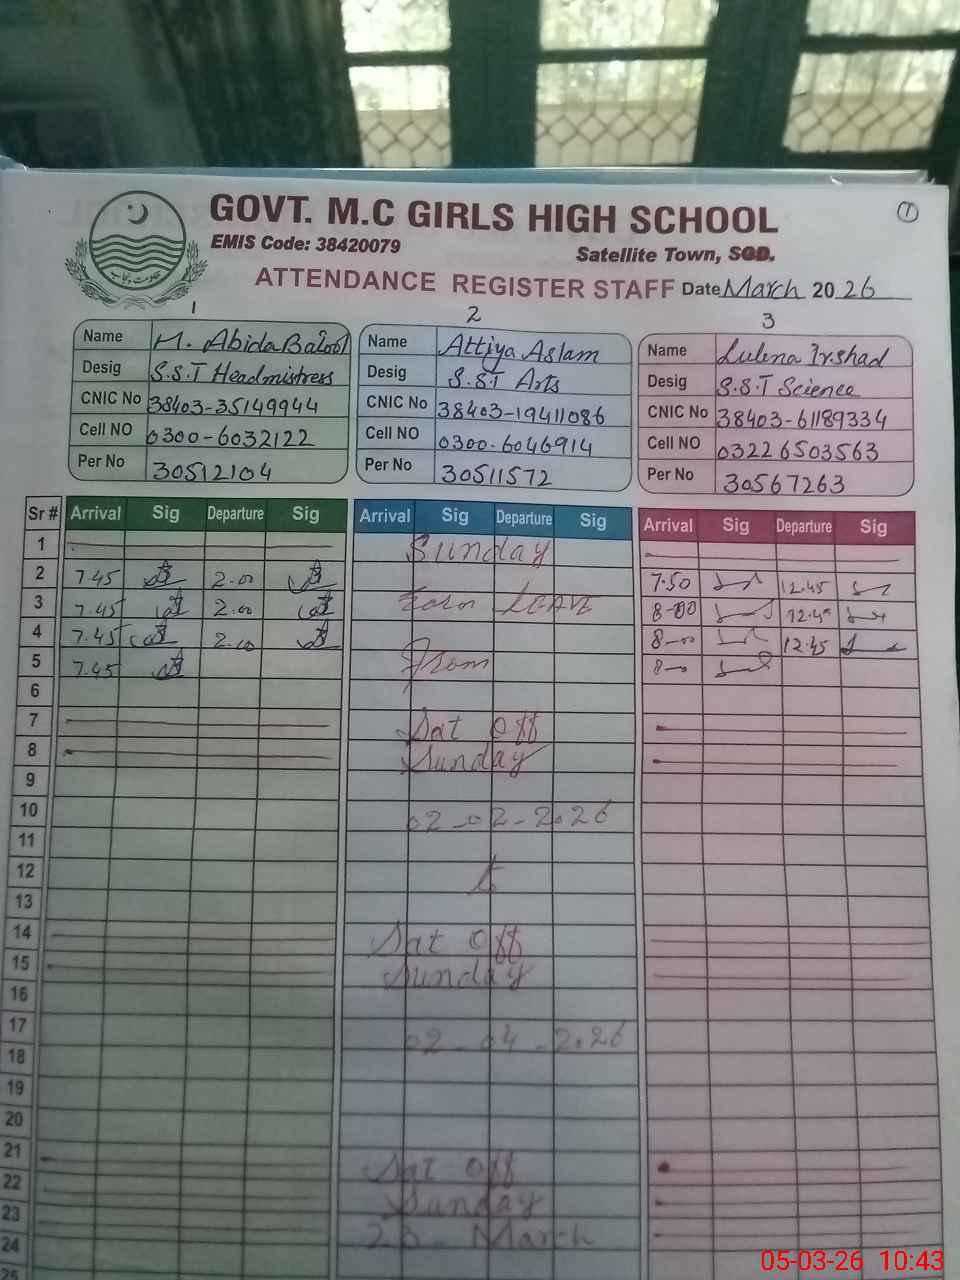 GOVT. M.C GIRLS HIGH SCHOOL
1
EMIS Code: 38420079
Satellite Town, SGD.
ATTENDANCE REGISTER STAFF Date March 2026
حکومت پنجاب
1 2 3
Name M. Abida Batool
Desig S.S.T Headmistress
CNIC No 38403-35149944
Cell NO 0300-6032122
Per No 30512104
Name Attiya Aslam
Desig S.S.T Arts
CNIC No 38403-19411086
Cell NO 0300-6046914
Per No 30511572
Name Irshad
Desig S.S.T Science
CNIC No 38403-61189334
Cell NO 03226503563
Per No 30567263
Sr # Arrival Sig Departure Sig Arrival Sig Departure Sig Arrival Sig Departure Sig
1 Sunday
2 7.45 2.00 7.50 12.45
3 7.45 2.00 Earn LEAVE 8-00 12.45
4 7.45 2.00 8-00 12.45
5 7.45 From 8-0
6
7 Sat Off
8 Sunday
9
10 02-02-2026
11
12 to
13
14 Sat Off
15 Sunday
16
17 02-04-2026
18
19
20
21 Sat Off
22 Sunday
23 23 March
24
25
05-03-26 10:43